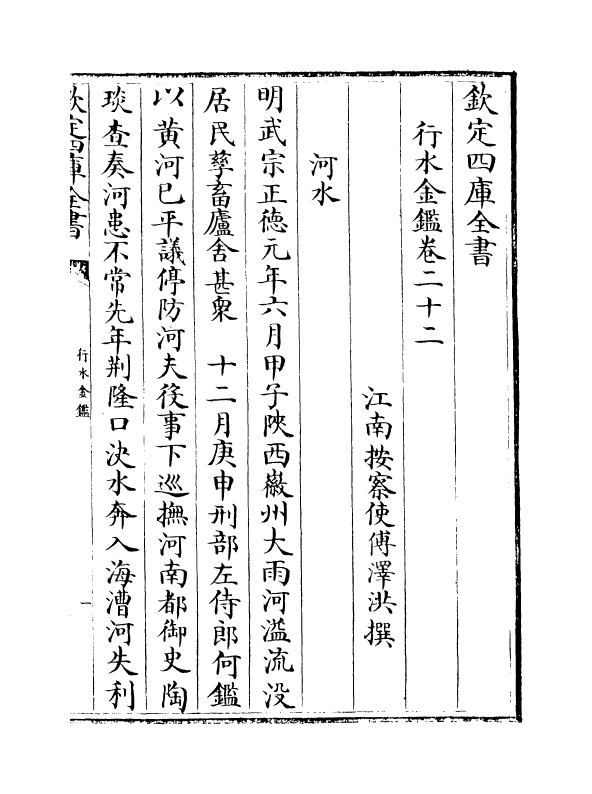 欽定四庫全書
行水金鑑卷二十二
江南按察使傅澤洪撰
河水
明武宗正德元年六月甲子陜西徽州大雨河溢流没
居民孳畜廬舍甚衆　十二月庚申刑部左侍郎何鑑
以黄河已平議停防河夫役事下巡撫河南都御史陶
琰查奏河患不常先年荆隆口決水奔入海漕河失利
欽定四庫全書
行水金鑑
一